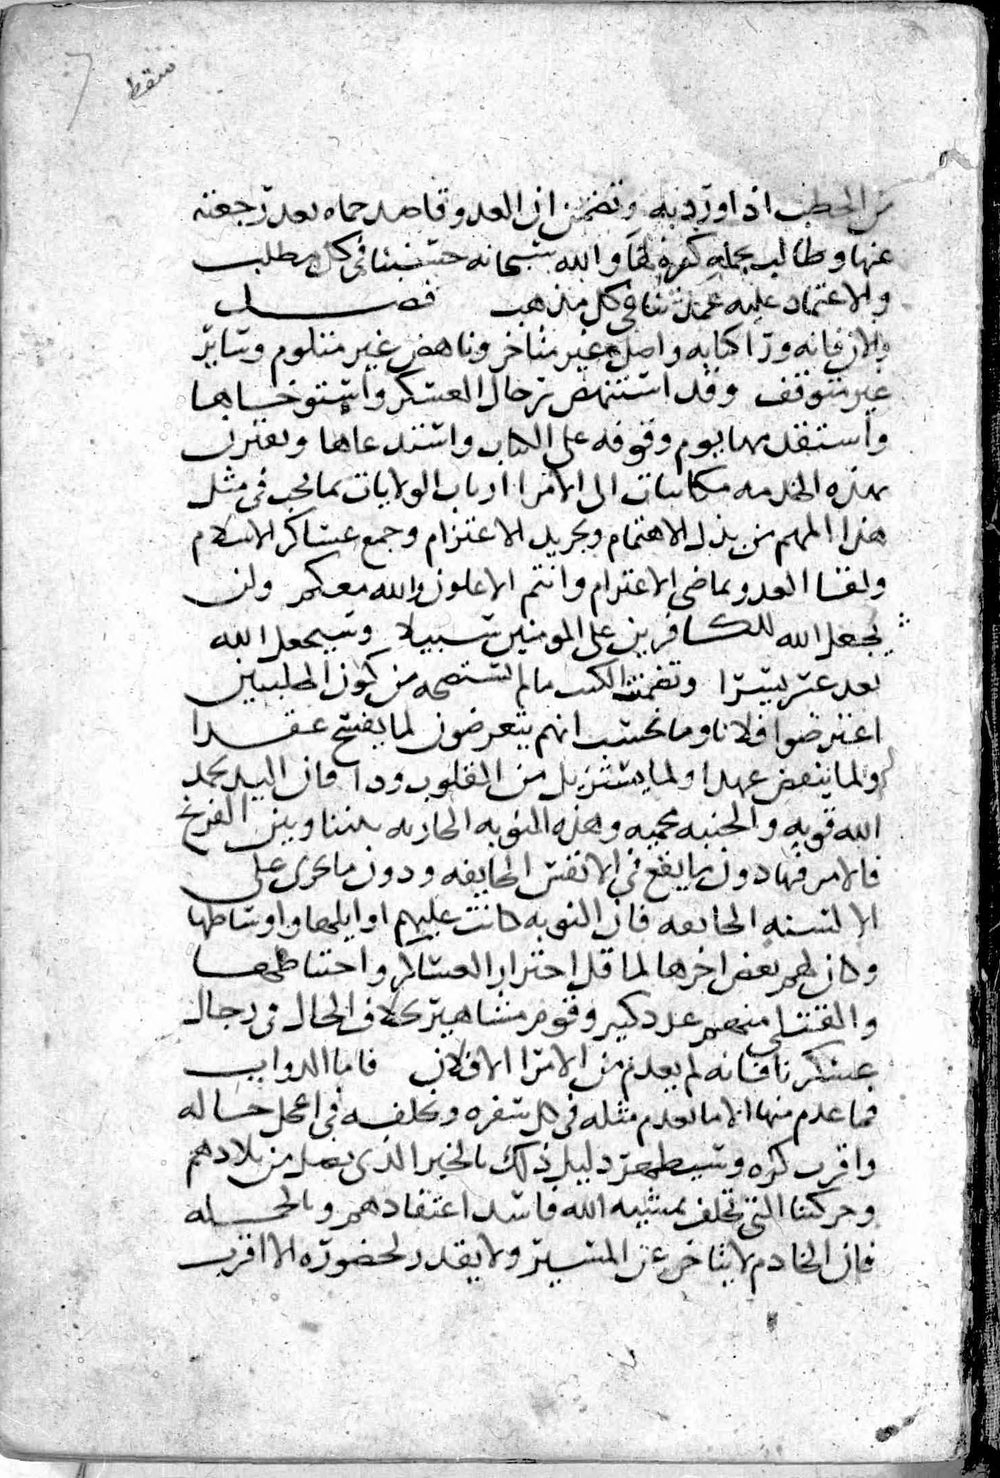 سقط
من الخطب اذا ورد به وتضمن ان العدو قاصد حماه بعد رجعته
عنها وطالب بجمله كوره لها والله سبحانه حسبنا في كل مطلب
والاعتماد عليه عمدتنا في كل مذهب فصل
والان فانه وركابه واصل غير متاخر وناهض غير متلوم وساير
غير متوقف وقد استنهض رجال العسكر واستوخاها
واستقدمها يوم وقوفه على الكتاب واستدعاها ويقترن
بهذه الخدمه مكاتبات الى الامرا ارباب الولايات بما يجب في مثل
هذا المهم من بذل الاهتمام وتجريد الاعتزام وجمع عساكر الاسلام
ولقا العدو بماضي الاعتزام وانتم الاعلون والله معكم ولن
يجعل الله للكافرين على المومنين سبيلا وسيجعل الله
بعد عسر يسرا وتضمنت الكتب ما لم نستصحه من كون الحلبيين
اعترضوا فلانا وما نحسب انهم يتعرضون لما يفسخ عقدا
ولما ينقض عهدا ولما يستزيل من القلوب ودا فان اليد بحمد
الله قويه والجنبه محميه وهذه النوبه الجاريه بيننا وبين الفرنج
فالامر فيها دون ما يقع في الانفس الخايفه ودون ما يجري على
الالسنه الخايفه فان النوبه كانت عليهم اوايلها واوساطها
وكان لهم بعض اخرها لما قل احتراز العساكر واحتياطها
والقتلى منهم عدد كبير وقوم مشاهير بخلاف الحال في رجال
عسكرنا فانه لم يعدم من الامرا الا فلان فاما الدواب
فما عدم منها الا ما يعدم مثله في كل سفره ونخلفه في اعجل حاله
واقرب كره وسيظهر دليل ذلك بالخبر الذي يصل من بلادهم
وحركتنا التي تخلف بمشيه الله فاسد اعتقادهم وبالجمله
فان الخادم لا يتاخر عن المسير ولا يقدر لحضوره الا اقرب